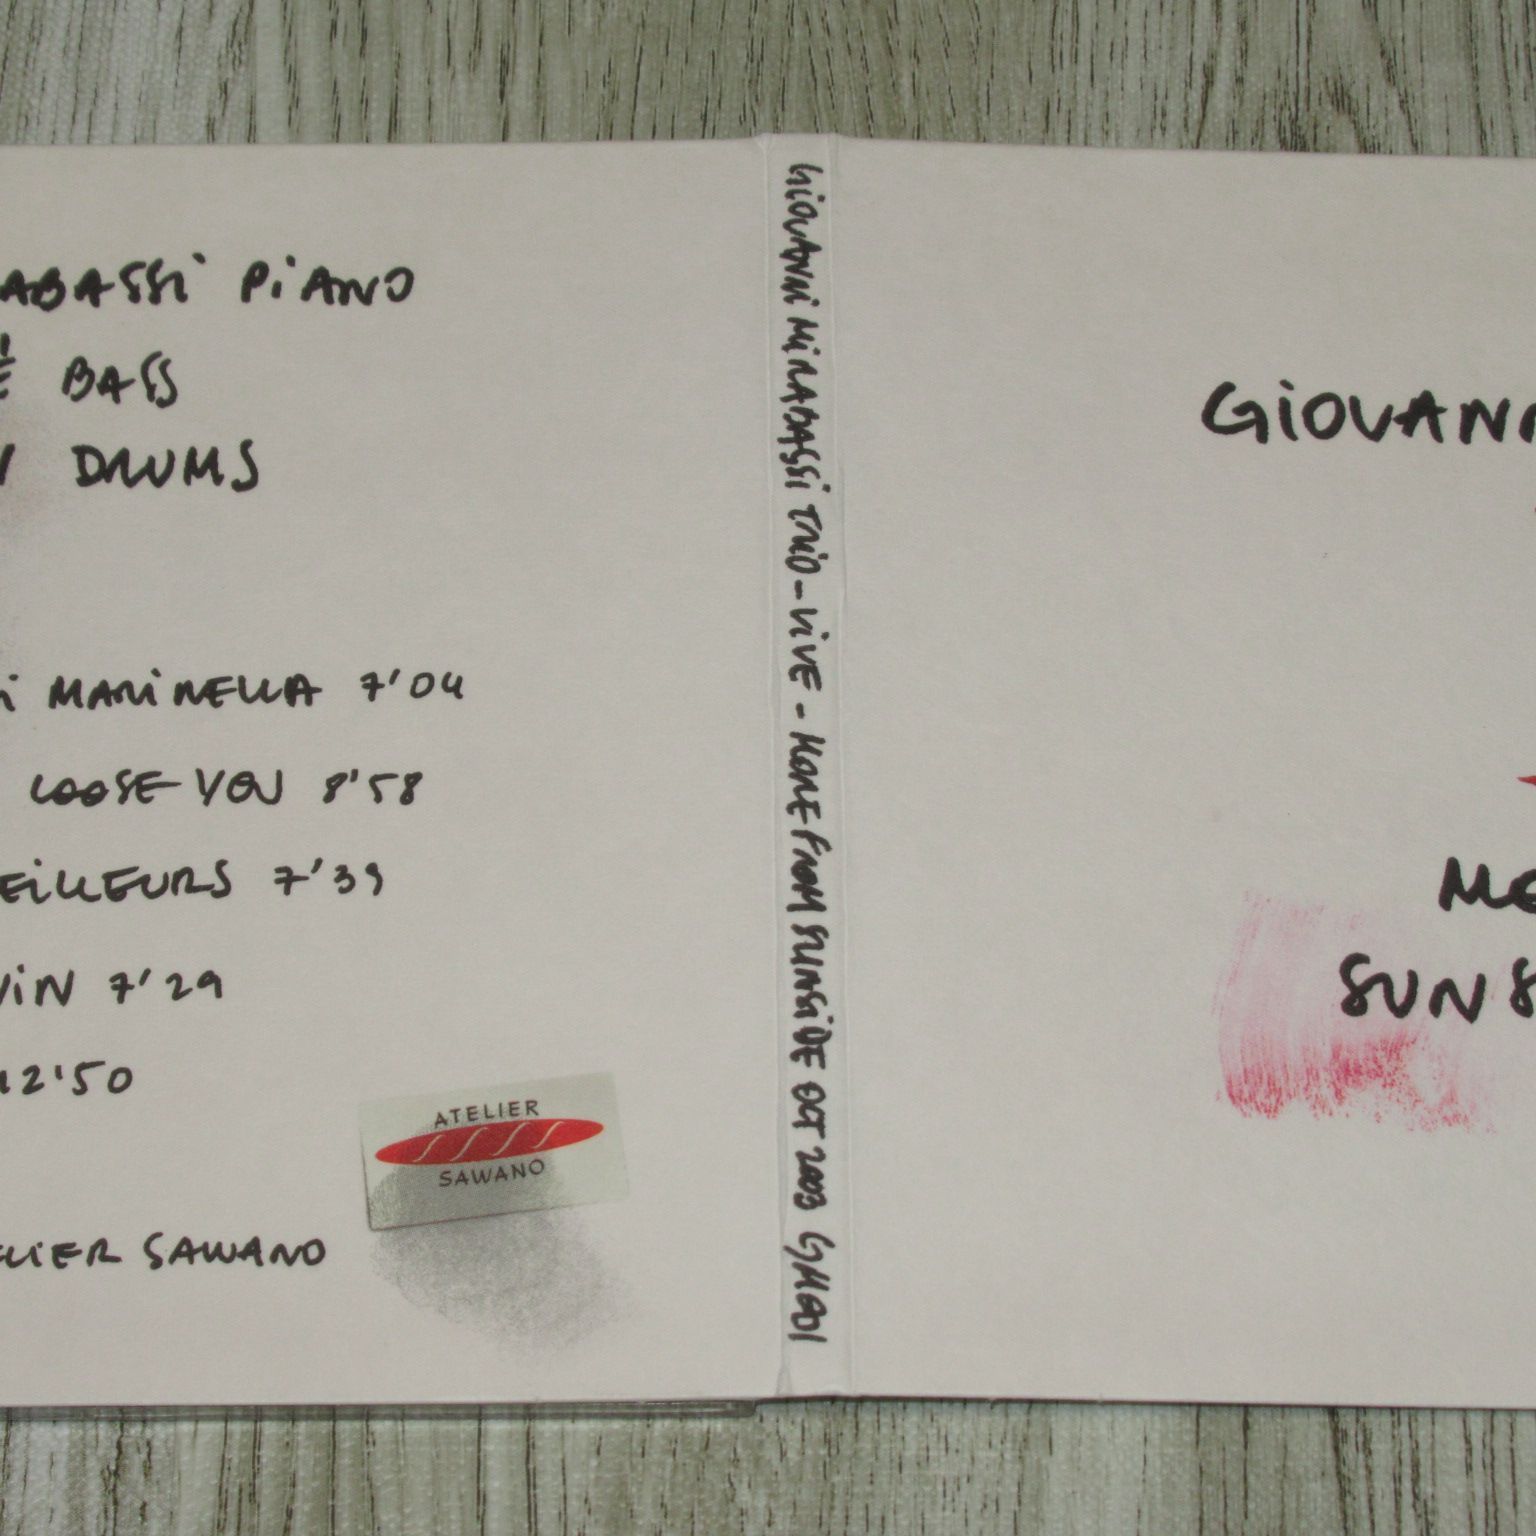 ABASSI PIANO
É BASS
DRUMS
I MARINELLA 7'04
LOOSE YOU 8'58
EILLEURS 7'39
VIN 7'29
12'50
ATELIER
SAWANO
ELIER SAWANO
GIOVANNI MIRABASSI TRIO - VIVE - MORE FROM SUNSIDE OCT 2003 GM001
GIOVANN
MO
SUNS